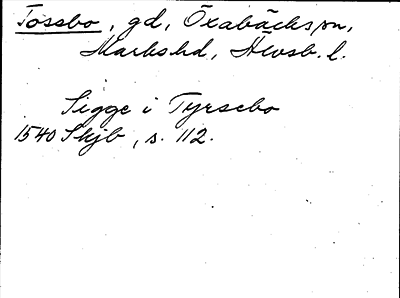 Tossbo, gd, Öxabäckspn,
Markshd, Älvsb. l.
Sigge i Tyrsebo
1540 Skjb, s. 112.